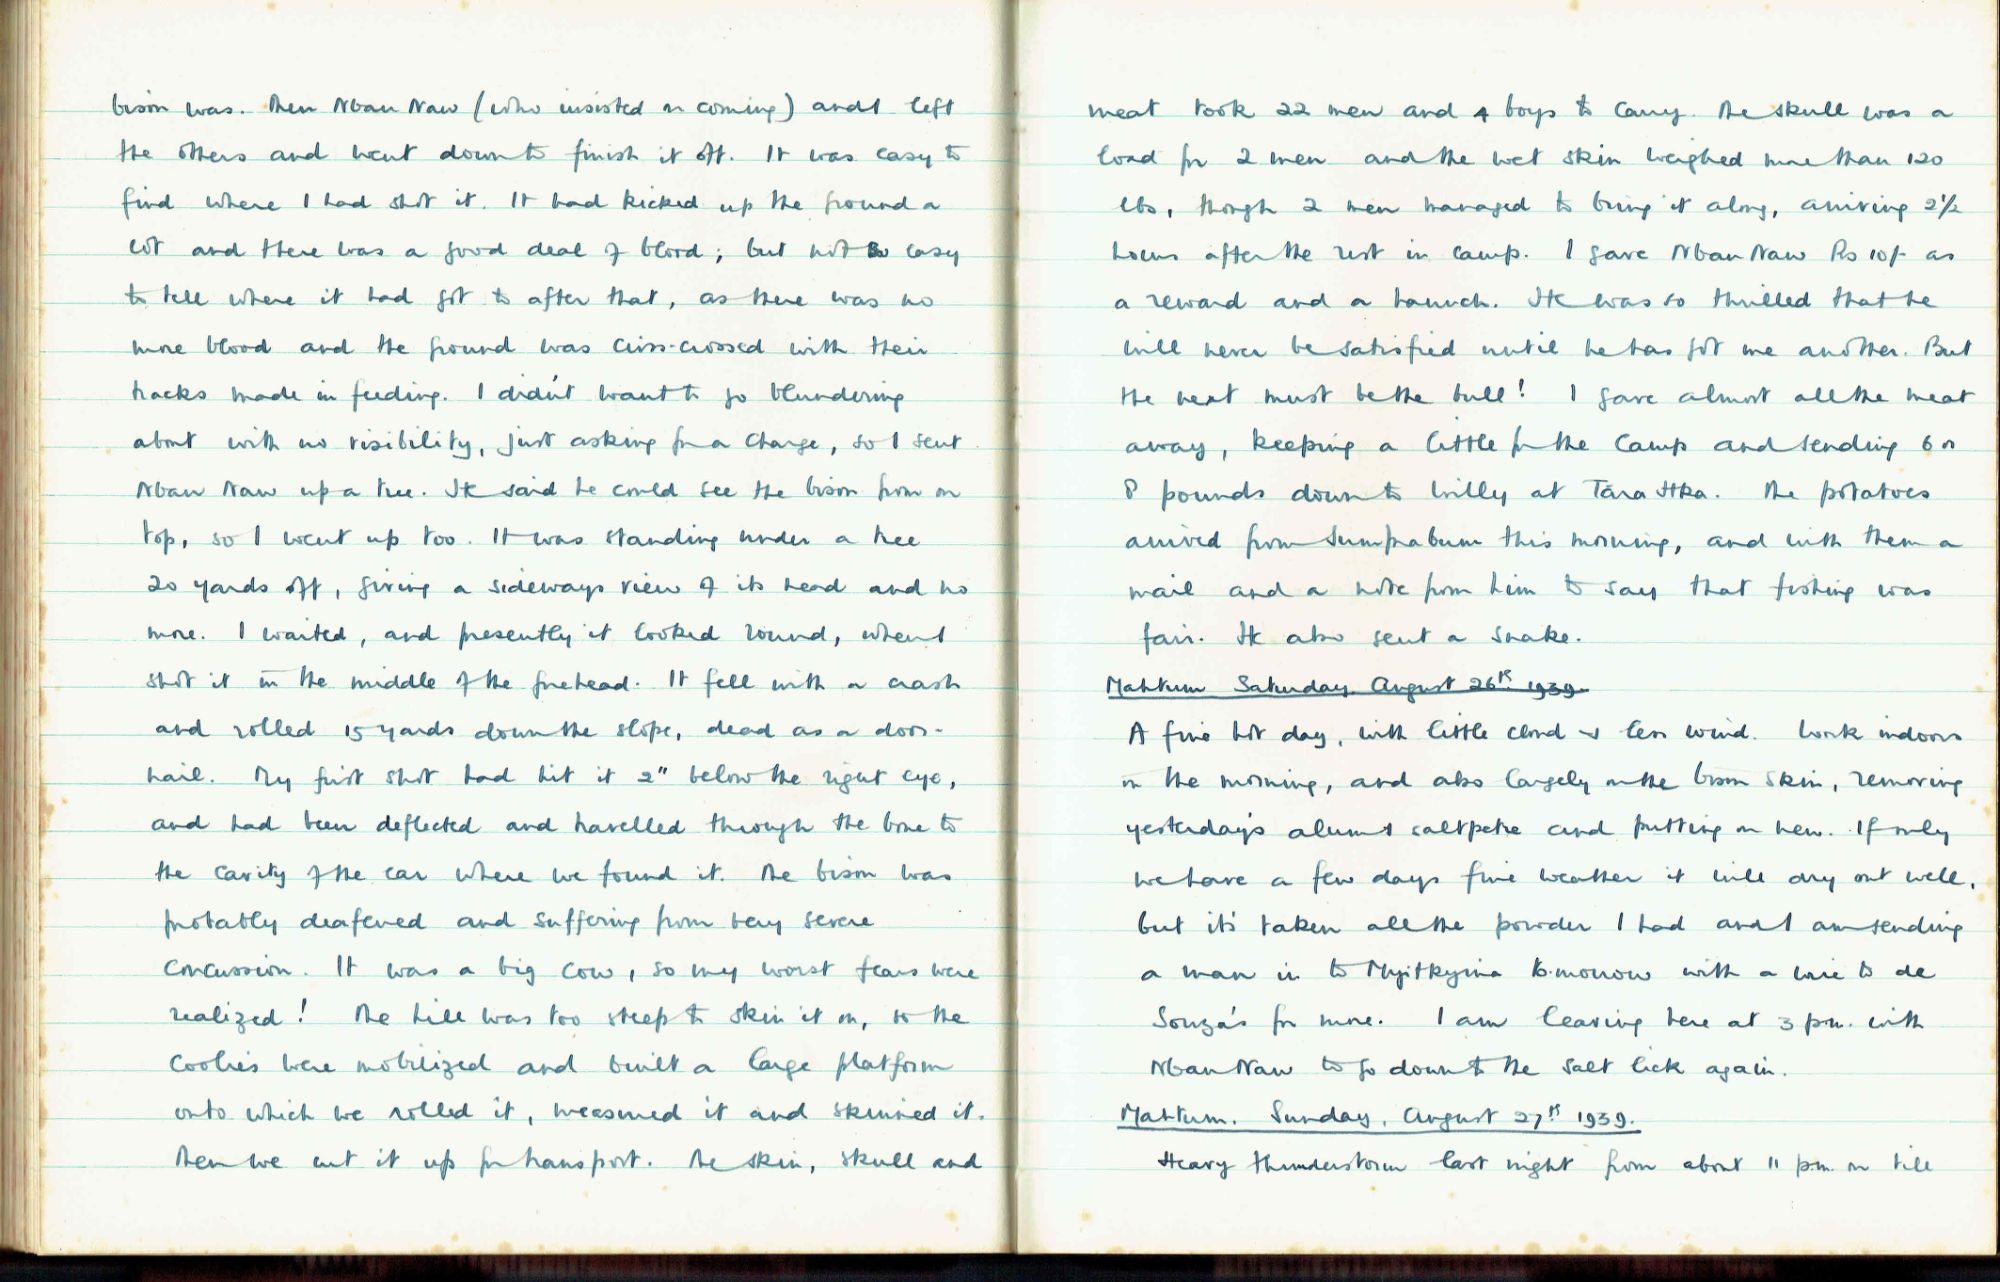 bison was. Then Nbau Naw (who insisted on coming) and I left
the others and went down to finish it off. It was easy to
find where I had shot it. It had kicked up the ground a
lot and there was a good deal of blood; but not so easy
to tell where it had got to after that, as there was no
more blood and the ground was criss-crossed with their
tracks made in feeding. I didn't want to go blundering
about with no visibility, just asking for a charge, so I sent
Nbau Naw up a tree. He said he could see the bison from on
top, so I went up too. It was standing under a tree
20 yards off, giving a sideways view of its head and no
more. I waited, and presently it looked round, when I
shot it in the middle of the forehead. It fell with a crash
and rolled 15 yards down the slope, dead as a door-
nail. My first shot had hit it 2" below the right eye,
and had been deflected and travelled through the bone to
the cavity of the ear where we found it. The bison was
probably deafened and suffering from very severe
concussion. It was a big cow, so my worst fears were
realized! The hill was too steep to skin it on, so the
coolies were mobilized and built a large platform
onto which we rolled it, measured it and skinned it.
Then we cut it up for transport. The skin, skull and
meat took 22 men and 4 boys to carry. The skull was a
load for 2 men and the wet skin weighed more than 120
lbs, though 2 men managed to bring it along, arriving 2½
hours after the rest in camp. I gave Nbau Naw Rs 10/- as
a reward and a haunch. He was so thrilled that he
will never be satisfied until he has got me another. But
the next must be the bull! I gave almost all the meat
away, keeping a little for the camp and sending 6 or
8 pounds down to Willy at Tara Hka. The potatoes
arrived from Sumprabum this morning, and with them a
mail and a note from him to say that fishing was
fair. He also sent a snake.
Mahtum Saturday August 26th 1939
A fine hot day, with little cloud & less wind. Work indoors
in the morning, and also largely on the bison skin, removing
yesterday's alum & saltpetre and putting on new. If only
we have a few days fine weather it will dry out well,
but it's taken all the powder I had and I am sending
a man in to Myitkyina to-morrow with a wire to de
Souza's for more. I am leaving here at 3 p.m. with
Nbau Naw to go down to the salt lick again.
Mahtum. Sunday. August 27th 1939.
Heavy thunderstorm last night from about 11 pm. on till